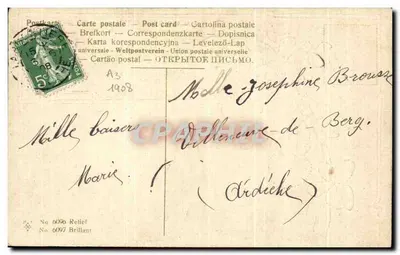 Postkarte — Carte postale — Post card — Cartolina postale
Brefkort — Correspondenzkarte — Dopisnica
Karta korespondencyjna — Levelező-Lap
Union postale universelle — Weltpostverein — Unione postale universale
Cartão postal — ОТКРЫТОЕ ПИСЬМО.
1908
Mlle Josephine Brousse
Villeneuve-de-Berg.
(Ardèche)
Mille baisers
Marie
No. 6096 Relief
No. 6097 Brillant